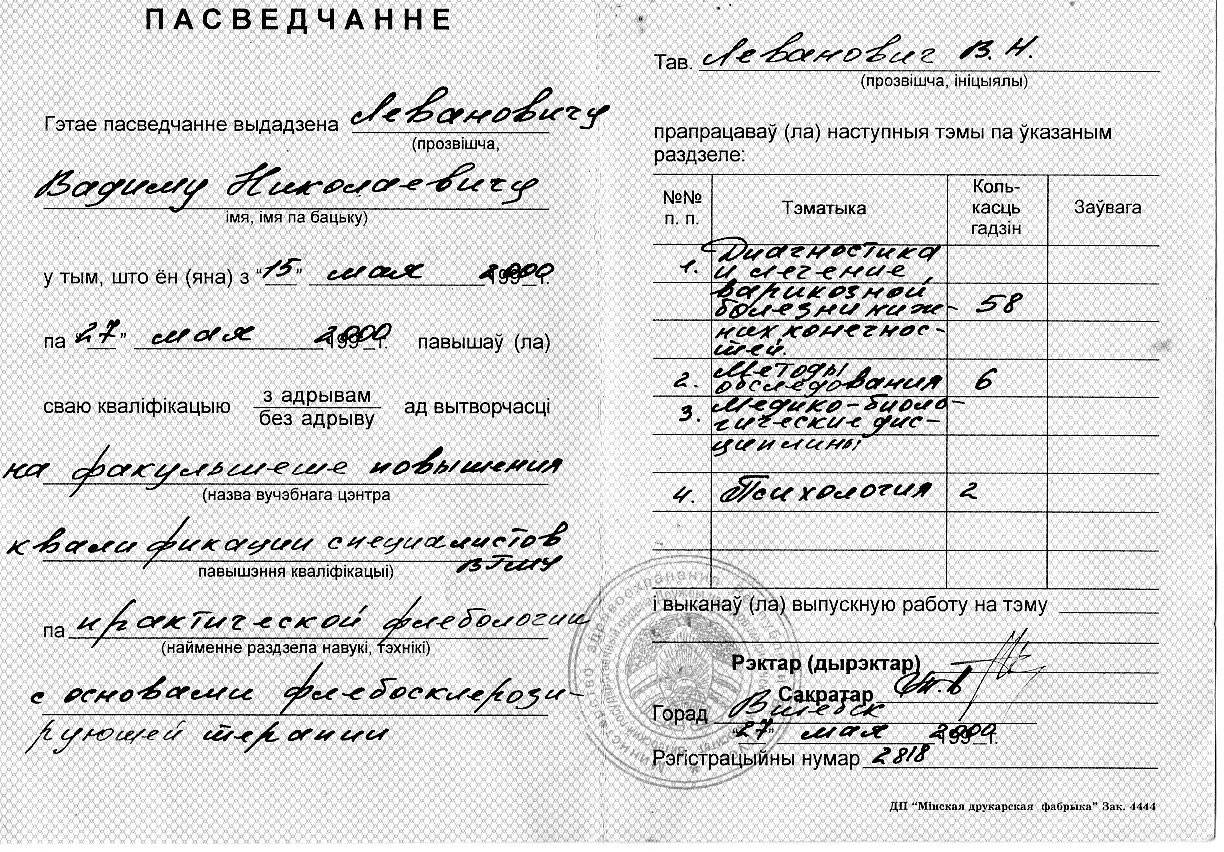 ПАСВЕДЧАННЕ
Гэтае пасведчанне выдадзена Левановичу
(прозвішча,
Вадиму Николаевичу
імя, імя па бацьку)
у тым, што ён (яна) з “15” мая 2000 199_г.
па “27” мая 2000 199_г. павышаў (ла)
сваю кваліфікацыю з адрывам ад вытворчасці
без адрыву
на факультете повышения
(назва вучэбнага цэнтра
квалификации специалистов
павышэння кваліфікацыі) ВГМУ
па практической флебологии
(найменне раздзела навукі, тэхнікі)
с основами флебосклерози-
рующей терапии
Тав. Леванович В.Н.
(прозвішча, ініцыялы)
прапрацаваў (ла) наступныя тэмы па ўказаным
раздзеле:
№№ п. п. Тэматыка Коль-касць гадзін Заўвага
1. Диагностика
и лечение
варикозной
болезни ниж- 58
них конечнос-
тей.
2. Методы
обследования 6
3. Медико-биоло-
гические дис-
циплины
4. Психология 2
і выканаў (ла) выпускную работу на тэму
Рэктар (дырэктар)
Сакратар
Горад Витебск
“27” мая 2000 199_г.
Рэгістрацыйны нумар 2818
ДП “Мінская друкарская фабрыка” Зак. 4444